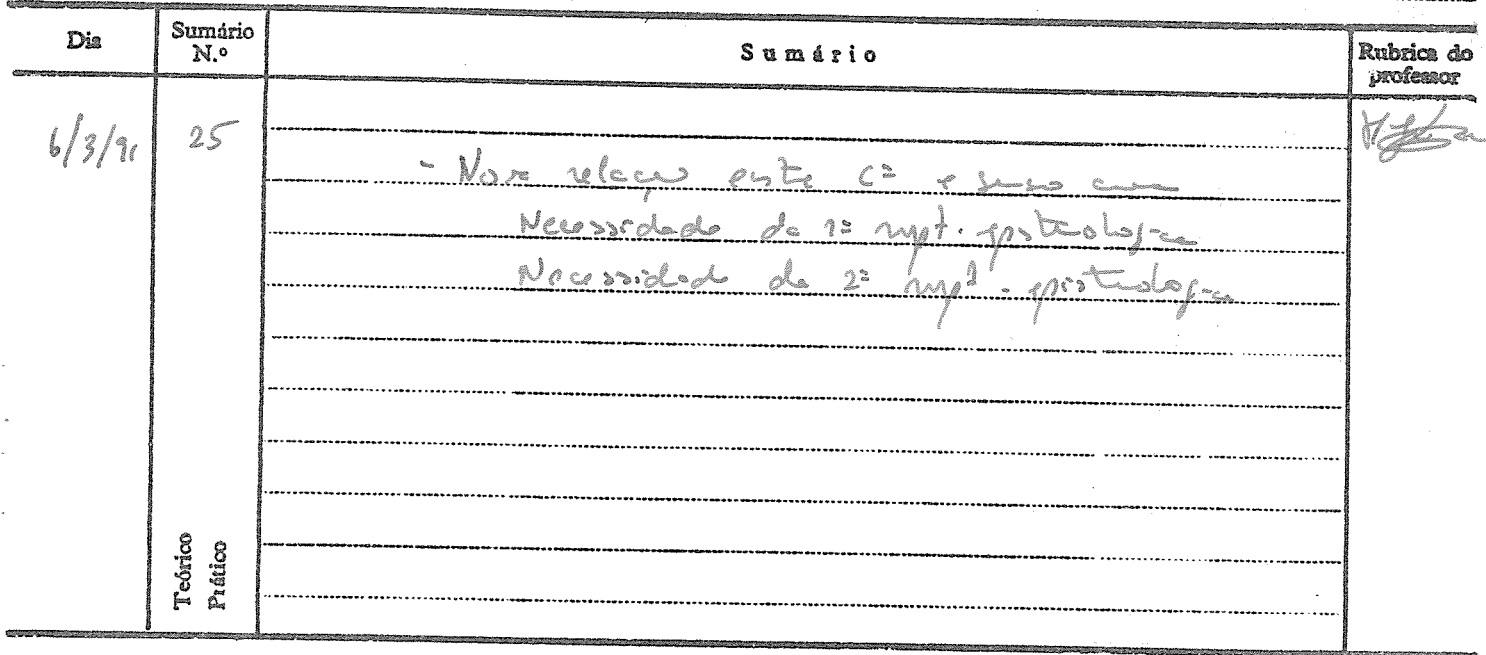 Dia Sumário N.º Sumário Rubrica do professor
6/3/91 25
- Nova relação entre Cª e senso com
Necessidade da 1ª rupt. epistemológica
Necessidade da 2ª rupt. epistemológica
Teórico
Prático